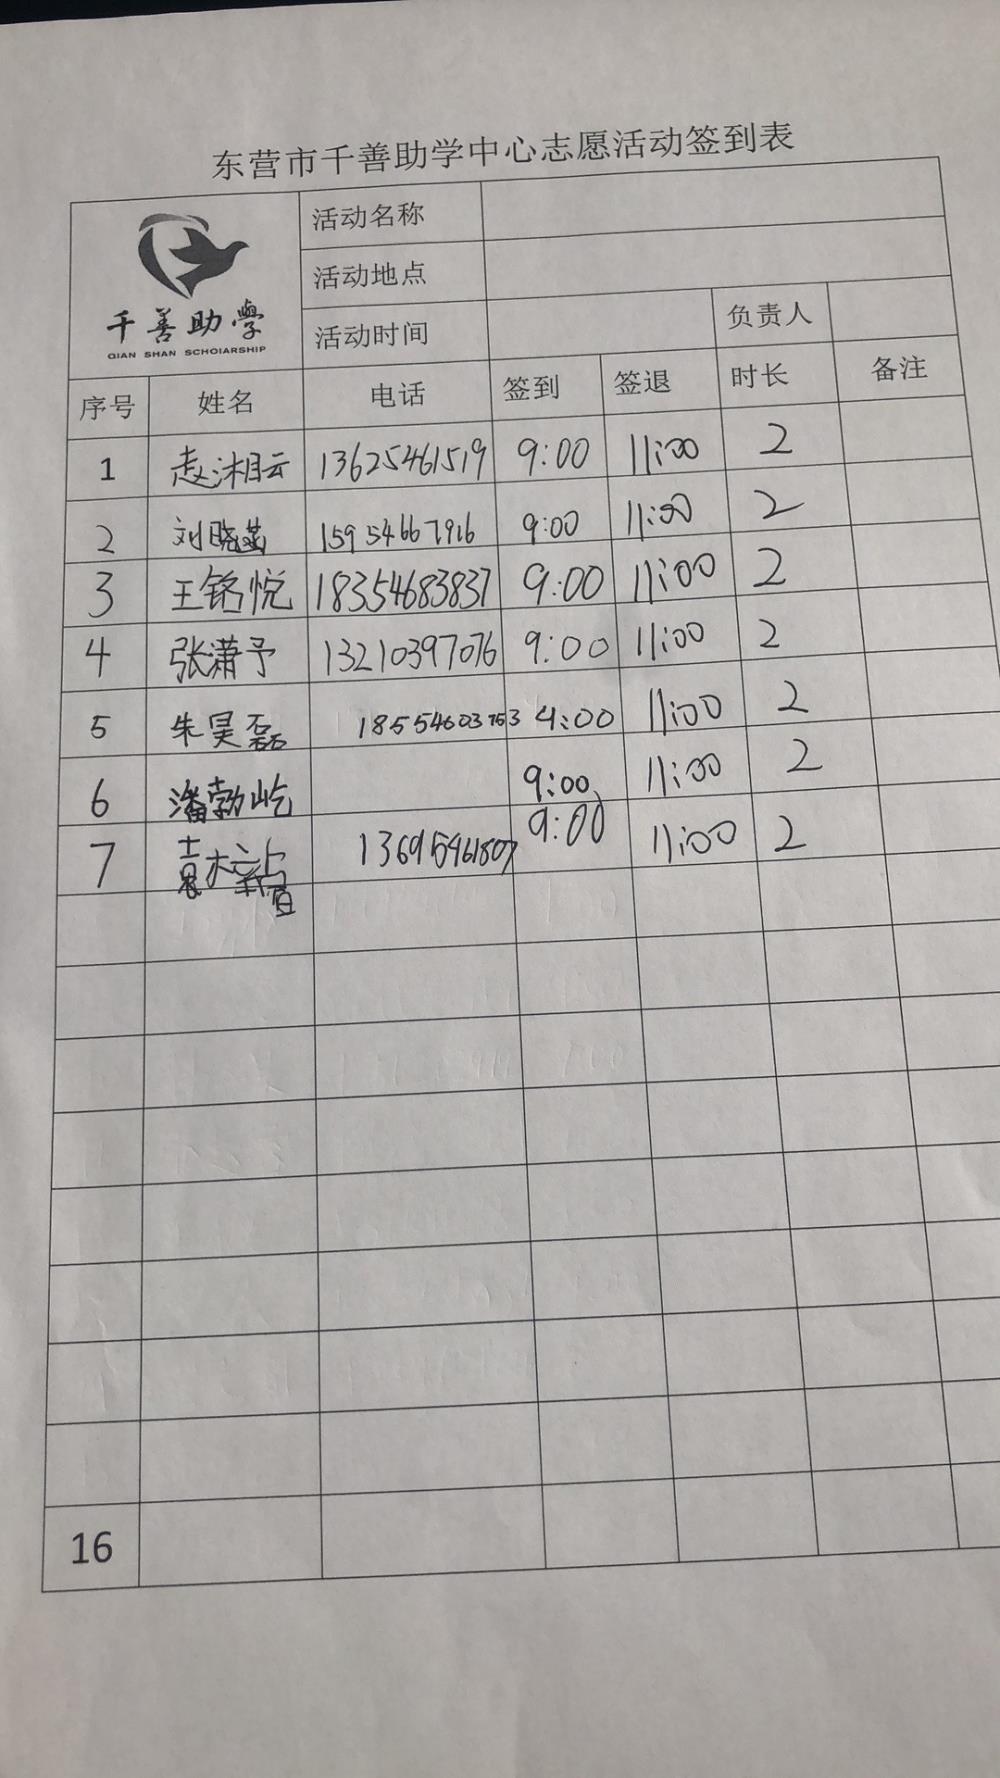 东营市千善助学中心志愿活动签到表
千善助学
QIAN SHAN SCHOIARSHIP
活动名称
活动地点
活动时间 负责人
序号 姓名 电话 签到 签退 时长 备注
1 赵湘云 13625461519 9:00 11:00 2
2 刘晓菡 15954667916 9:00 11:00 2
3 王铭悦 18354683837 9:00 11:00 2
4 张潇予 13210397076 9:00 11:00 2
5 朱昊磊 18554603753 4:00 11:00 2
6 潘勃屹 9:00 11:00 2
7 13695461807 9:00 11:00 2
16